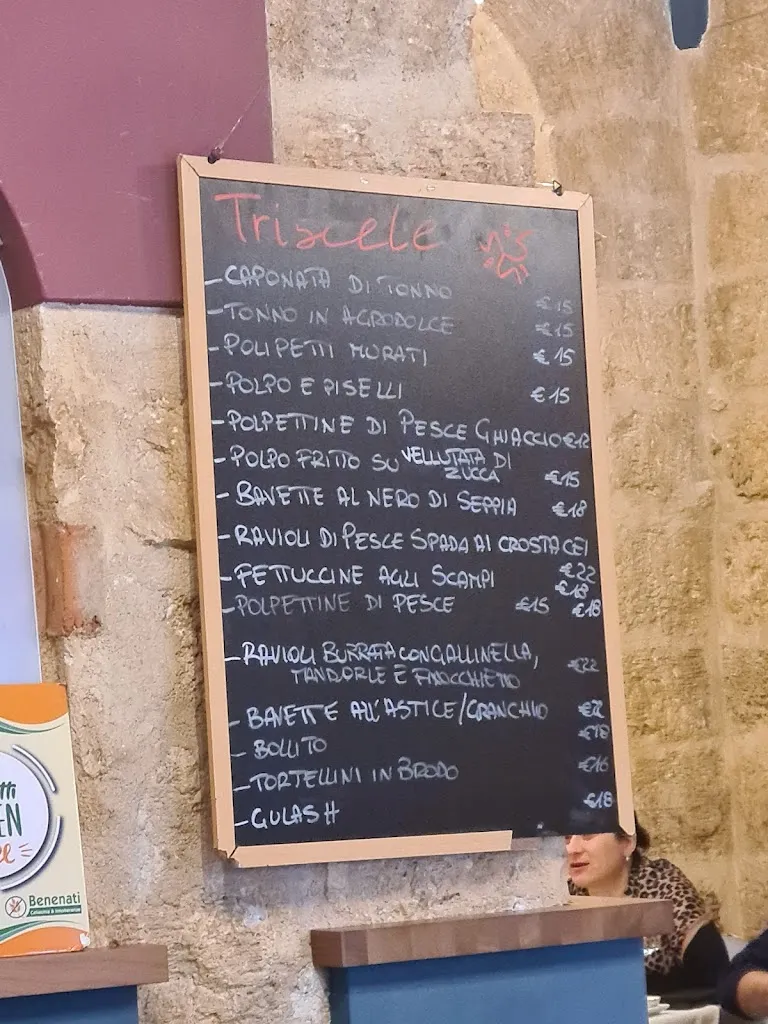 Triscele
- CAPONATA DI TONNO €15
- TONNO IN AGRODOLCE €15
- POLIPETTI MURATI €15
- POLPO E PISELLI €15
- POLPETTINE DI PESCE GHIACCIO €12
- POLPO FRITTO SU VELLUTATA DI
ZUCCA €15
- BAVETTE AL NERO DI SEPPIA €18
- RAVIOLI DI PESCE SPADA AI CROSTACEI
€22
- FETTUCCINE AGLI SCAMPI €18
- POLPETTINE DI PESCE €15 €18
- RAVIOLI BURRATA CON GALLINELLA, €22
MANDORLE E FINOCCHIETTO
- BAVETTE ALL'ASTICE/GRANCHIO €22
- BOLLITO €18
- TORTELLINI IN BRODO €16
- GULASH €18
tti
EN
Benenati
Celiachia & Intolleranze